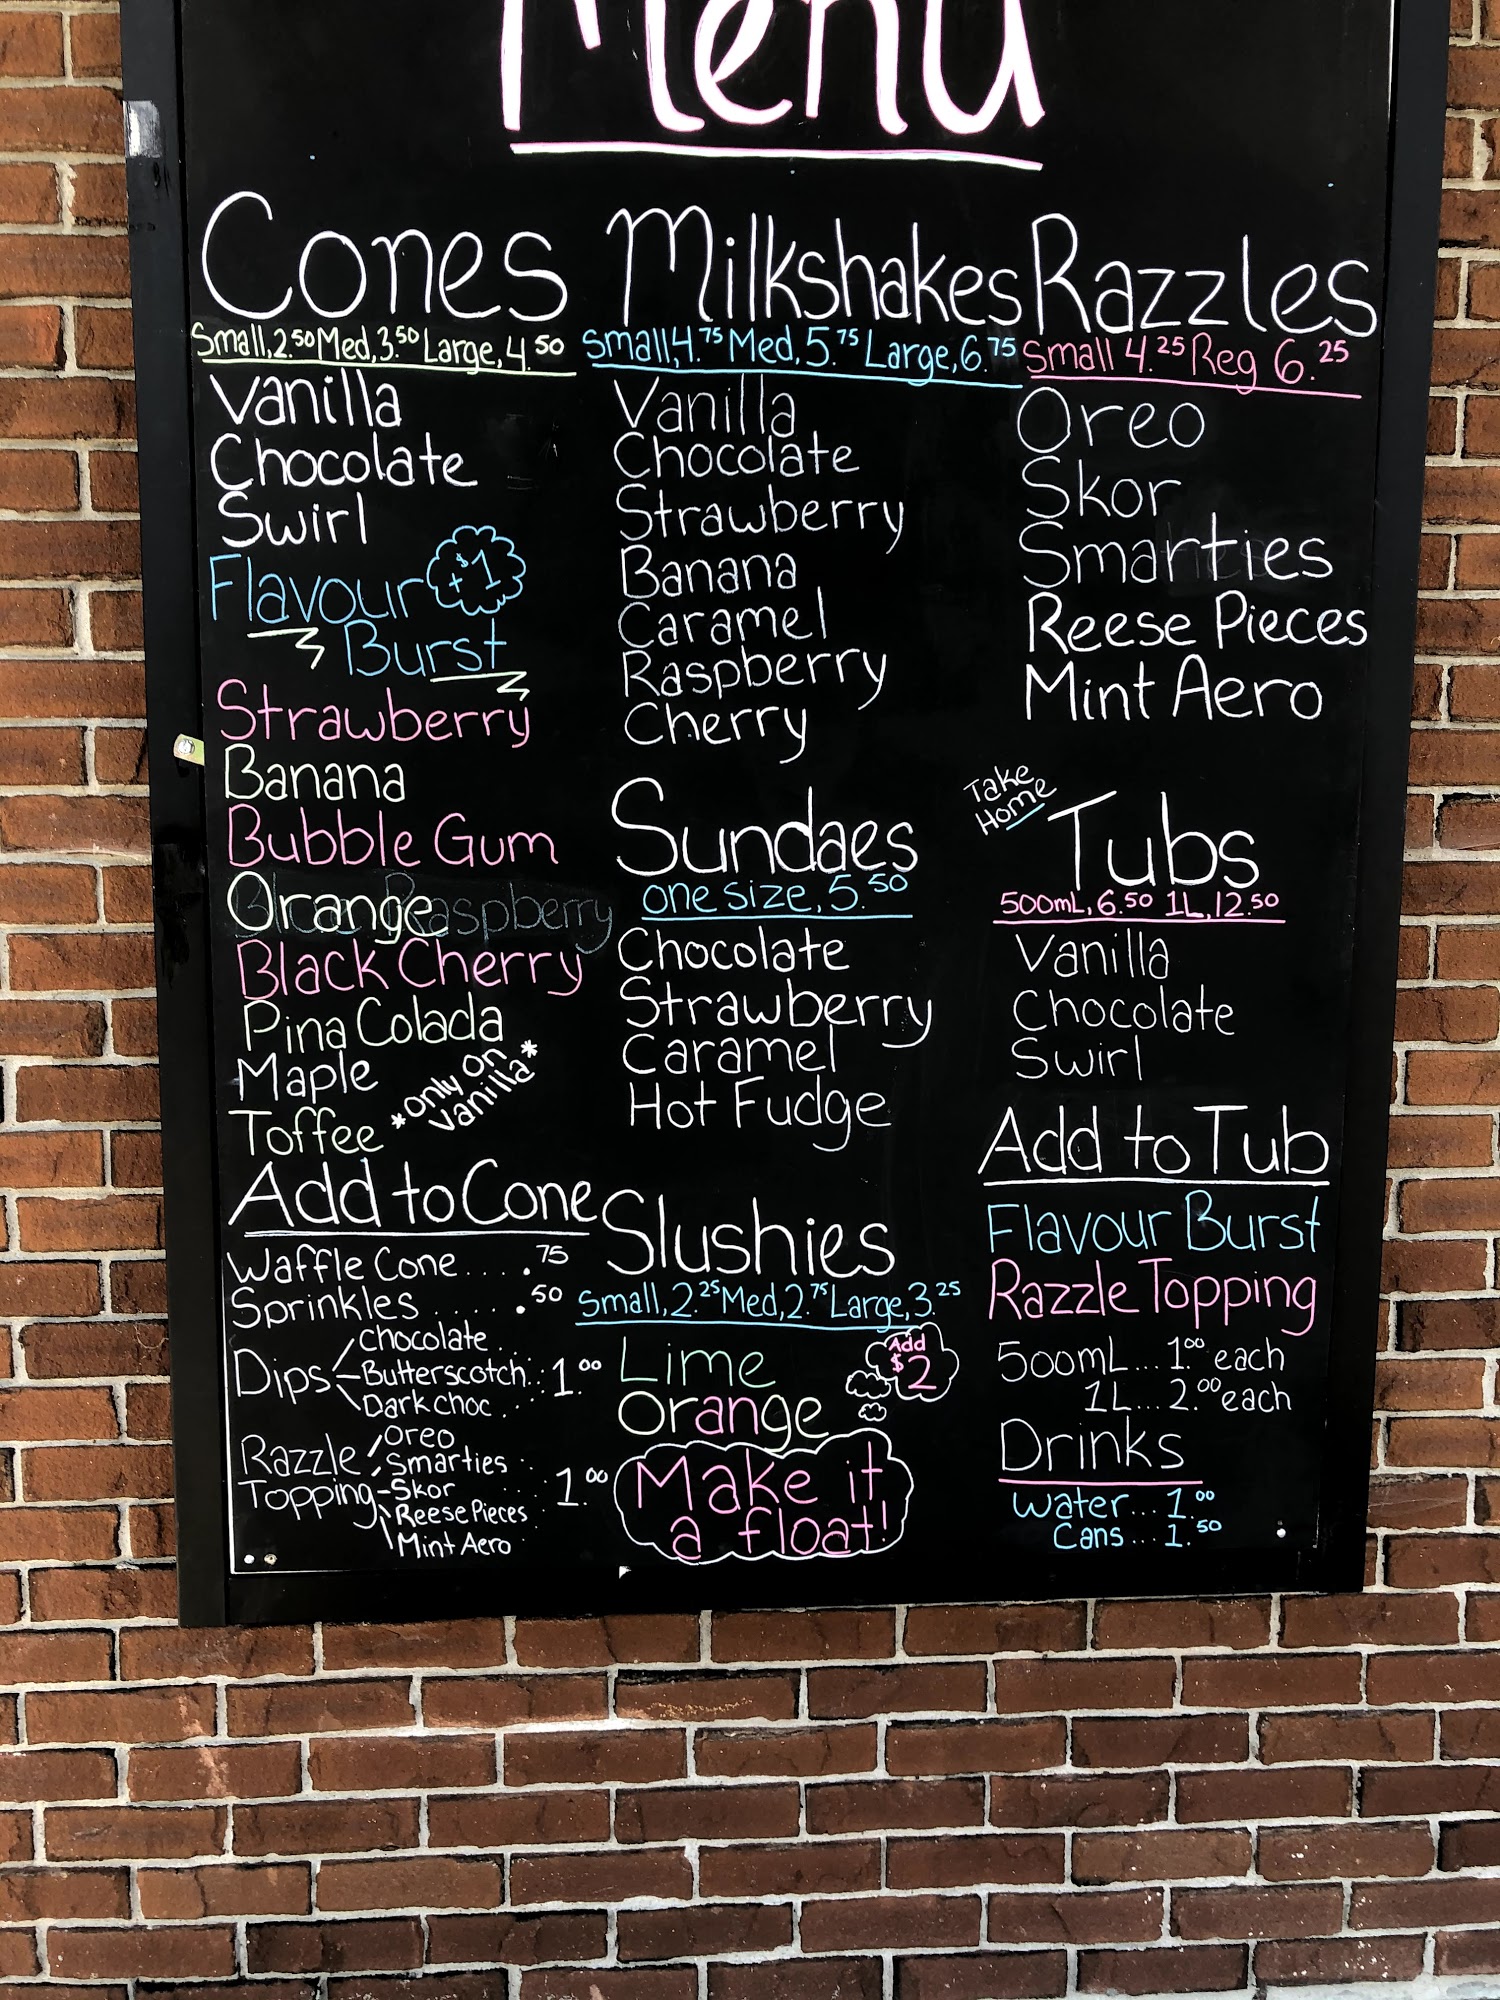 Menu
Cones
Small, 2.50 Med, 3.50 Large, 4.50
Vanilla
Chocolate
Swirl
Flavour +$1
Burst
Strawberry
Banana
Bubble Gum
Orange
Black Cherry
Pina Colada
Maple
Toffee
*only on
vanilla*
Add to Cone
Waffle Cone.... .75
Sprinkles ..... .50
Chocolate ..
Dips - Butterscotch... 1.00
Dark choc ..
Oreo
Razzle Smarties ..
Topping - Skor ... 1.00
Reese Pieces
Mint Aero
Milkshakes
Small, 4.75 Med, 5.75 Large, 6.75
Vanilla
Chocolate
Strawberry
Banana
Caramel
Raspberry
Cherry
Sundaes
one size, 5.50
Chocolate
Strawberry
Caramel
Hot Fudge
Slushies
Small, 2.25 Med, 2.75 Large, 3.25
Lime
Orange
Add
$2
Make it
a float!
Razzles
Small 4.25 Reg 6.25
Oreo
Skor
Smarties
Reese Pieces
Mint Aero
Take
Home
Tubs
500mL, 6.50 1L, 12.50
Vanilla
Chocolate
Swirl
Add to Tub
Flavour Burst
Razzle Topping
500mL... 1.00 each
1L... 2.00 each
Drinks
Water... 1.00
Cans... 1.50